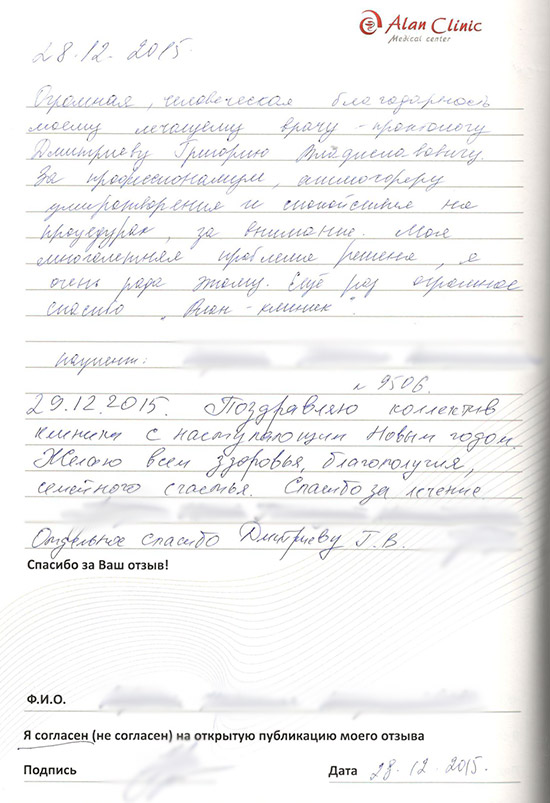 Alan Clinic
Medical center
28.12.2015.
Огромная, человеческая благодарность
моему лечащему врачу - проктологу
Дмитриеву Григорию Владиславовичу.
За профессионализм, атмосферу
умиротворения и спокойствия на
процедурах, за внимание. Моя
многолетняя проблема решена, я
очень рада этому. Ещё раз огромное
спасибо "Алан-клиник".
пациент:
№ 9506.
29.12.2015. Поздравляю коллектив
клиники с наступающим Новым годом.
Желаю всем здоровья, благополучия,
семейного счастья. Спасибо за лечение
Отдельное спасибо Дмитриеву Г.В.
Спасибо за Ваш отзыв!
Ф.И.О.
Я согласен (не согласен) на открытую публикацию моего отзыва
Подпись Дата 28.12.2015.